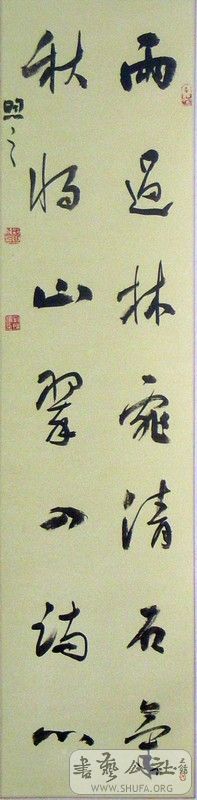 雨過林霏清石氣
秋將山翠入詩心
照之
書藝公社
WWW.SHUFA.ORG